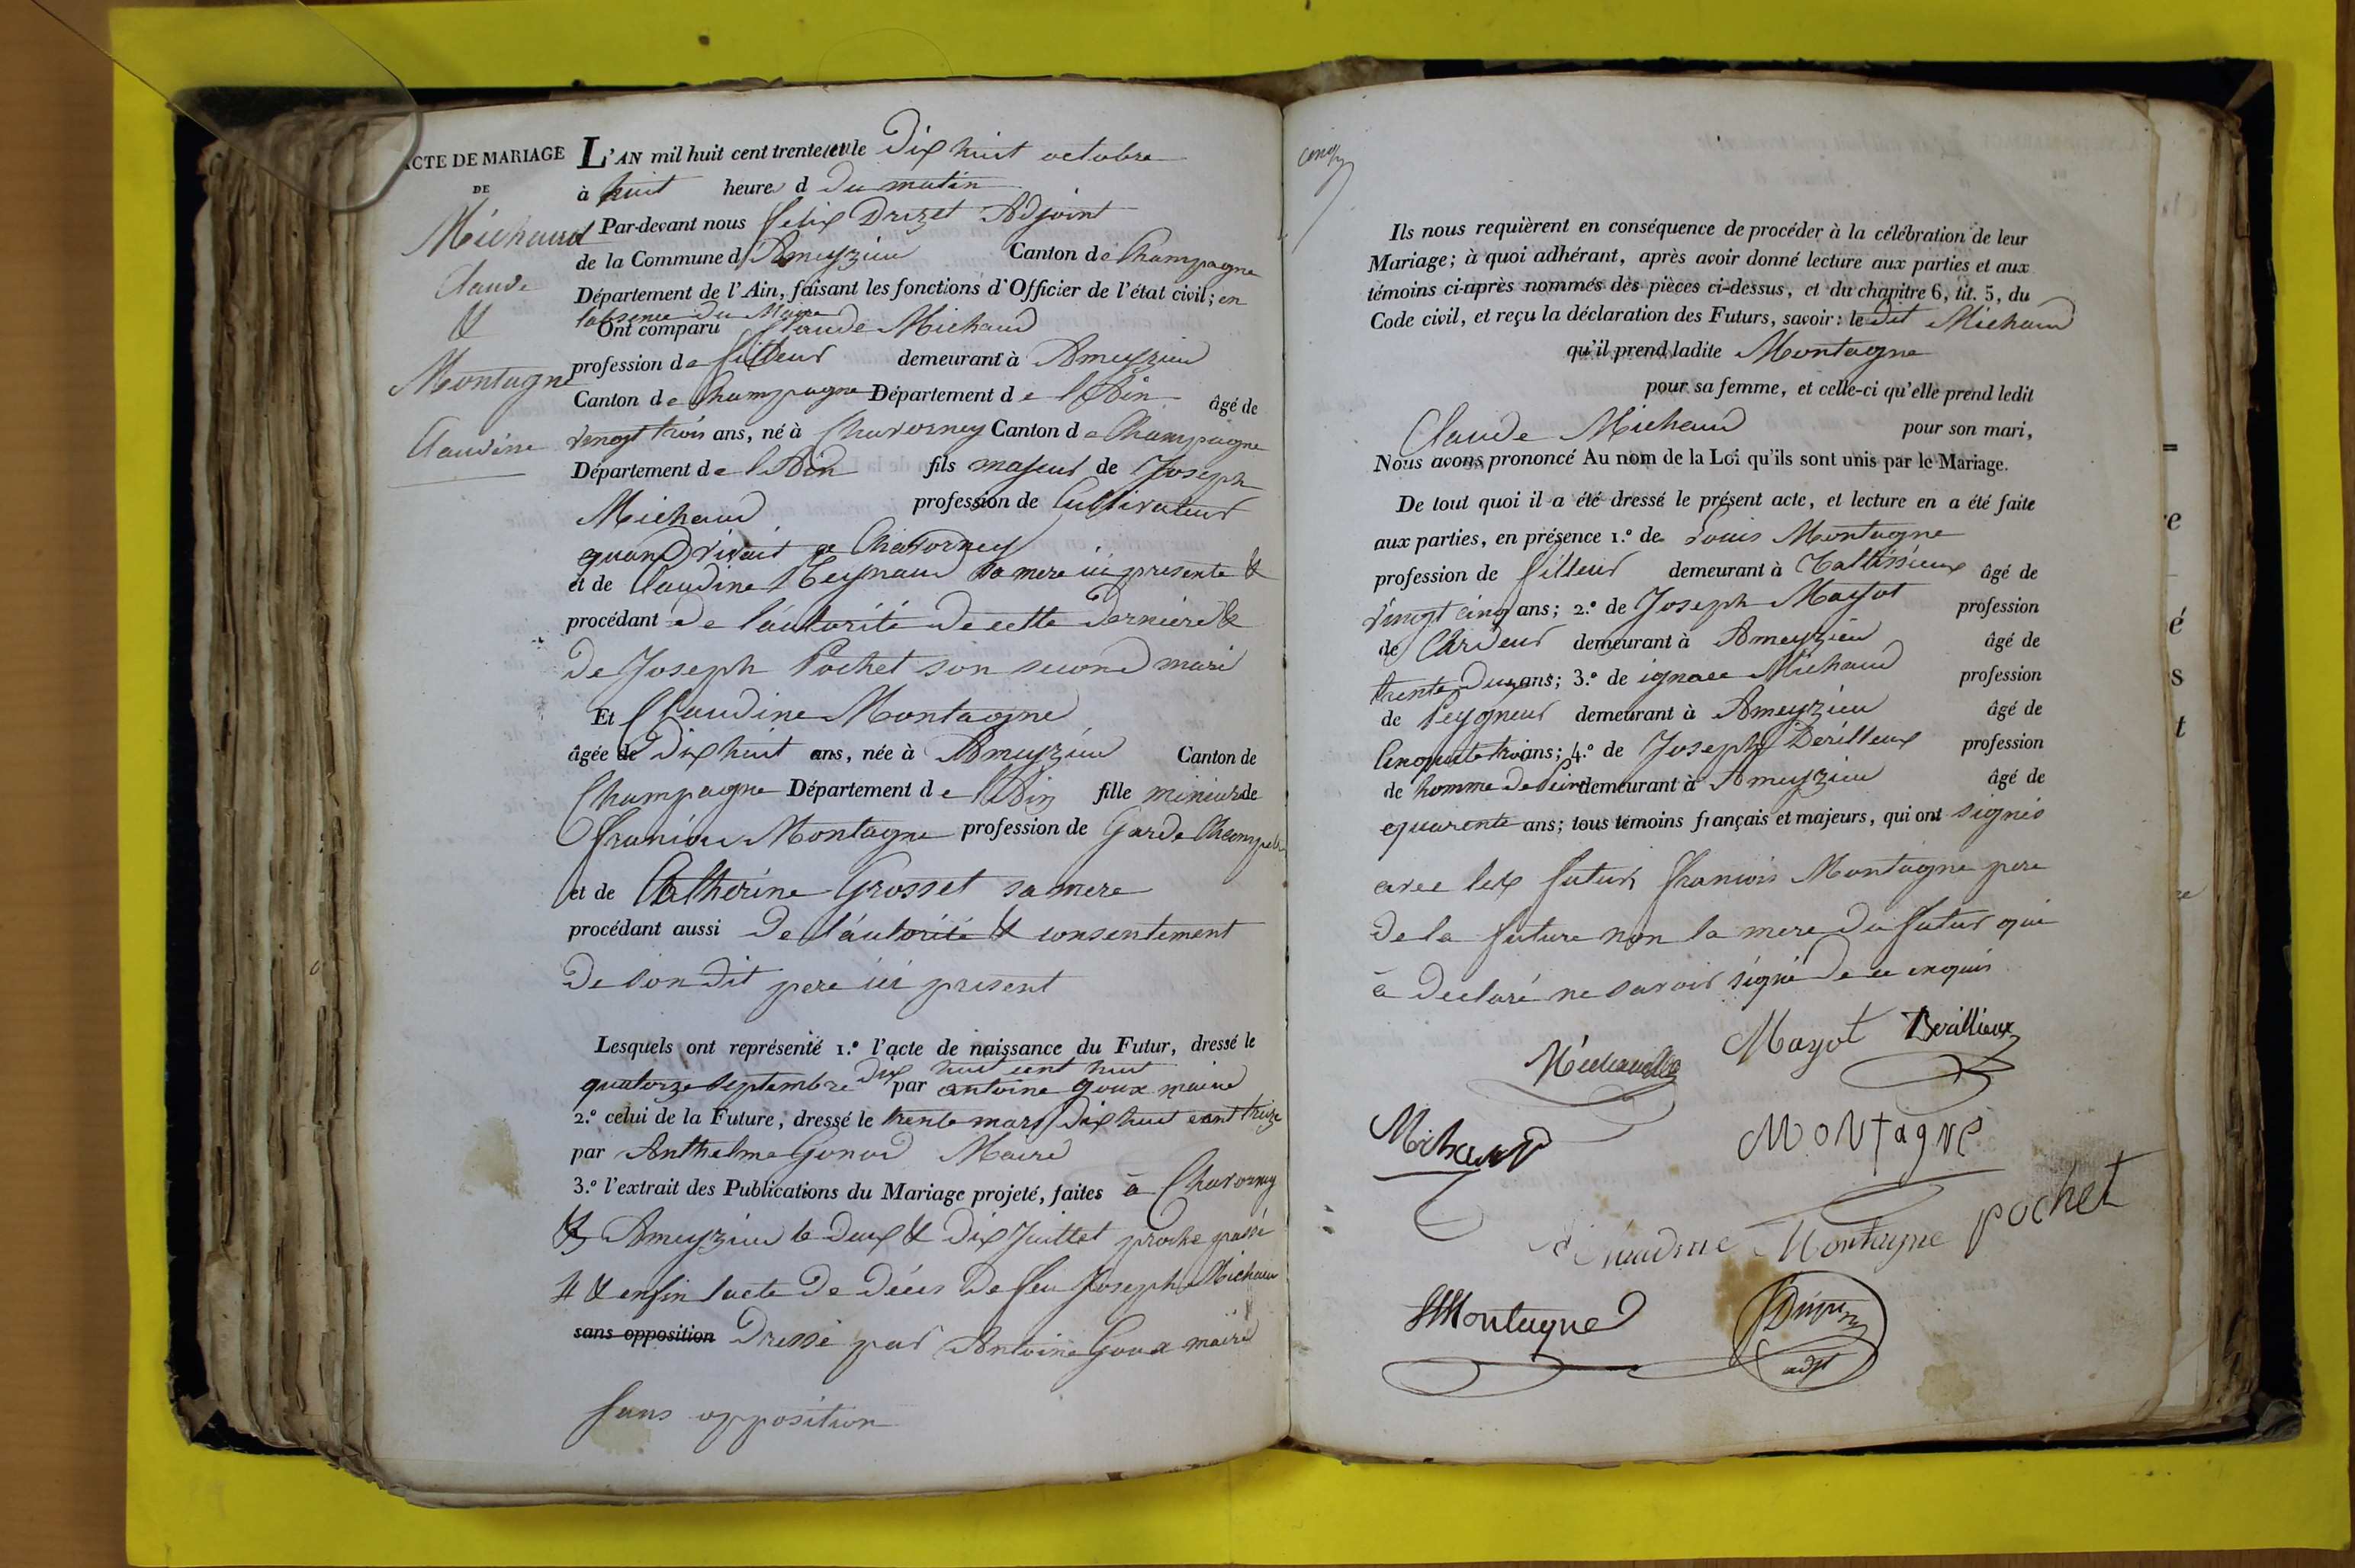 ACTE DE MARIAGE
DE
Michaud
Claude
&
Montagne
Claudine
L'AN mil huit cent trente le Dix huit octobre
à huit heures d du matin
Par-devant nous félix Drizet Adjoint
de la Commune d'Ameyzieu Canton de Champagne
Département de l'Ain, faisant les fonctions d'Officier de l'état civil; en
l'absence du Maire
Ont comparu Claude Michaud
profession de demeurant à Ameyzieu
Canton de Champagne Département de l'Ain âgé de
vingt trois ans, né à Chavorney Canton de Champagne
Département de l'Ain fils majeur de Joseph
Michaud profession de Cultivateur
quand vivait a Chavorney
et de Claudine Reynaud sa mere ici presente &
procédant de l'autorité de cette derniere &
de Joseph Pochet son second mari
Et Claudine Montagne
âgée de Dix huit ans, née à Ameyzieu Canton de
Champagne Département de l'Ain fille mineure de
françois Montagne profession de Garde Champetre
et de Catherine Grosset sa mere
procédant aussi De l'autorité & consentement
De son dit pere ici present
Lesquels ont représenté 1.° l'acte de naissance du Futur, dressé le
quatorze septembre dix huit cent huit par antoine Goux maire
2.° celui de la Future, dressé le trente mars dix huit cent treize
par Anthelme Gonod Maire
3.° l'extrait des Publications du Mariage projeté, faites à Chavorney
& Ameyzieu le Deux & Dix Juillet proche passé
4 & enfin l'acte De Décès De feu Joseph Michaud
sans opposition Dressé par Antoine Goux maire
sans opposition
Ils nous requièrent en conséquence de procéder à la célébration de leur
Mariage; à quoi adhérant, après avoir donné lecture aux parties et aux
témoins ci-après nommés des pièces ci-dessus, et du chapitre 6, tit. 5, du
Code civil, et reçu la déclaration des Futurs, savoir: le dit Michaud
qu'il prend ladite Montagne
pour sa femme, et celle-ci qu'elle prend ledit
Claude Michaud pour son mari,
Nous avons prononcé Au nom de la Loi qu'ils sont unis par le Mariage.
De tout quoi il a été dressé le présent acte, et lecture en a été faite
aux parties, en présence 1.° de Louis Montagne
profession de demeurant à Talissieux âgé de
vingt cinq ans; 2.° de Joseph Mayot profession
de Cardeur demeurant à Ameyzieu âgé de
trente deux ans; 3.° de ignace Michaud profession
de Peygneur demeurant à Ameyzieu âgé de
Cinquante trois ans; 4.° de Joseph Berilleux profession
de homme de peine demeurant à Ameyzieu âgé de
quarante ans; tous témoins français et majeurs, qui ont signés
avec les futur françois Montagne pere
De la future non la mere du futur qui
a declaré ne savoir signé de ce enquis
Michaud Mayot Berillieux
Michaud MONTAGNE
Claudine Montagne pochet
Montagne
adjt